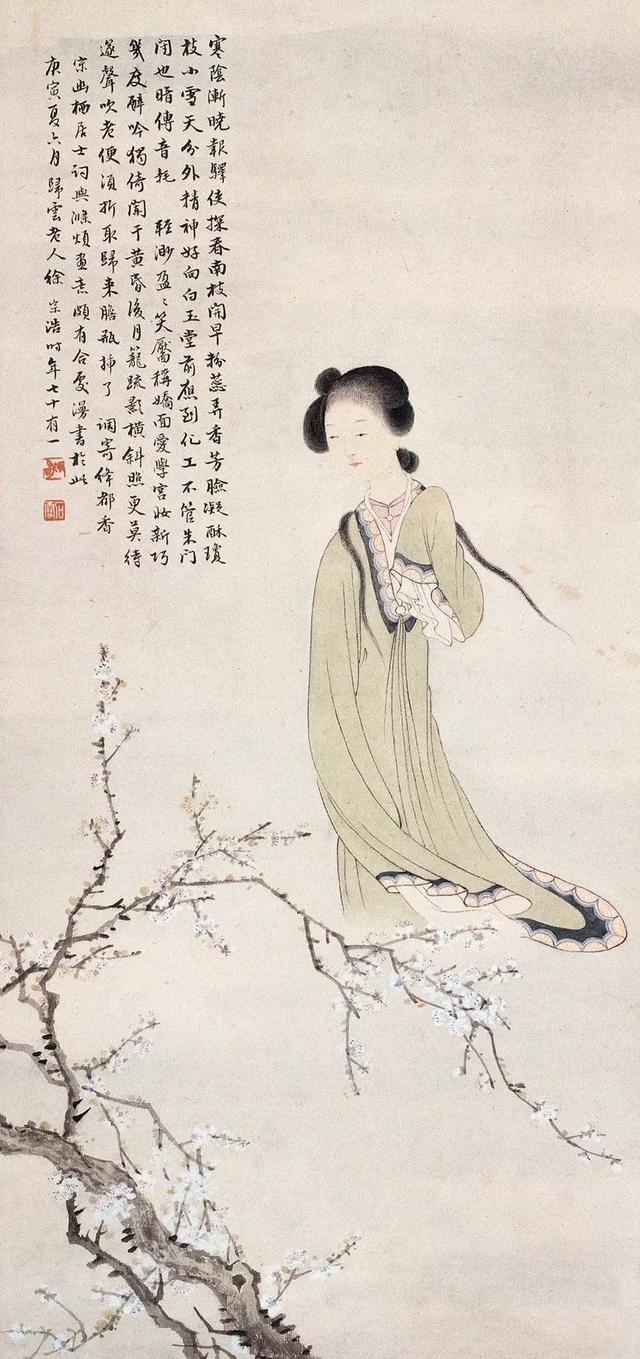 寒陰漸曉報驛使探春南枝開早粉蕊弄香芳臉凝酥瓊
枝小雪天分外精神好向白玉堂前應到化工不管朱門
閉也暗傳音耗 輕渺盈〻笑靨稱嬌面愛學宮妝新巧
幾度醉吟獨倚闌干黃昏後月籠疏影橫斜照更莫待
篴聲吹老便須折取歸來膽瓶插了 調寄絳都春
宗幽栖居士詞與滌煩畫意頗有合處漫書於此
庚寅夏六月歸雲老人徐宗浩時年七十有一